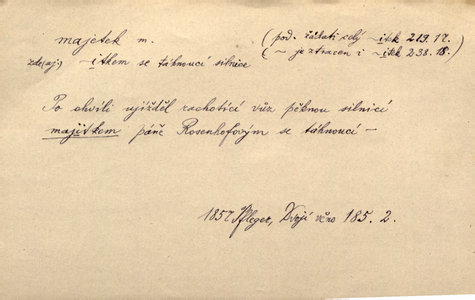 majetek m. (pod. žádati celý ~itek 219. 17.
zde(aj) ~itkem se táhnoucí silnice (~ je ztracen i ~itek 238. 18.)
Po chvíli ujížděl rachotící vůz pěknou silnicí
majitkem páně Rosenhofovým se táhnoucí —
1857 Pfleger, Dvojí věno 185. 2.